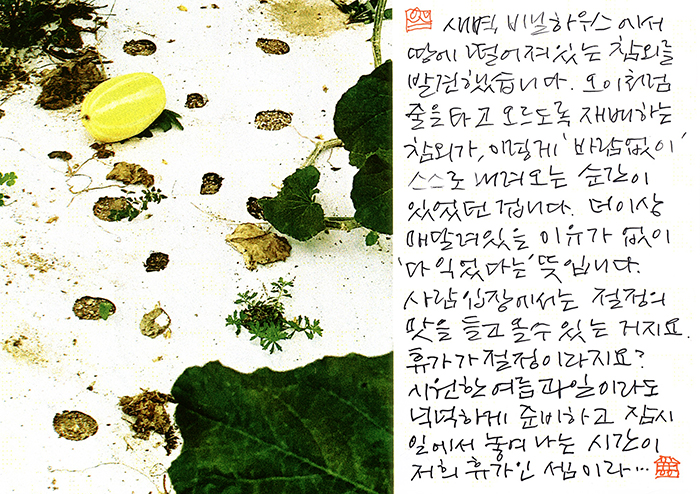 새벽, 비닐하우스에서
땅에 떨어져있는 참외를
발견했습니다. 오이처럼
줄을타고 오르도록 재배하는
참외가, 어떻게 '바람없이'
스스로 내려오는 순간이
있었던 겁니다. 더이상
매달려있을 이유가 없이
'다 익었다는' 뜻입니다.
사람 입장에서는 절정의
맛을 들고 올수 있는 거지요.
휴가가 절정이라지요?
시원한 여름과일이라도
넉넉하게 준비하고 잠시
일에서 놓여나는 시간이
저희 휴가인 셈이라…